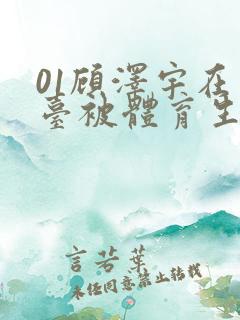 01顾澤宇在
臺被體育生
言若葉
未经同意禁止转载